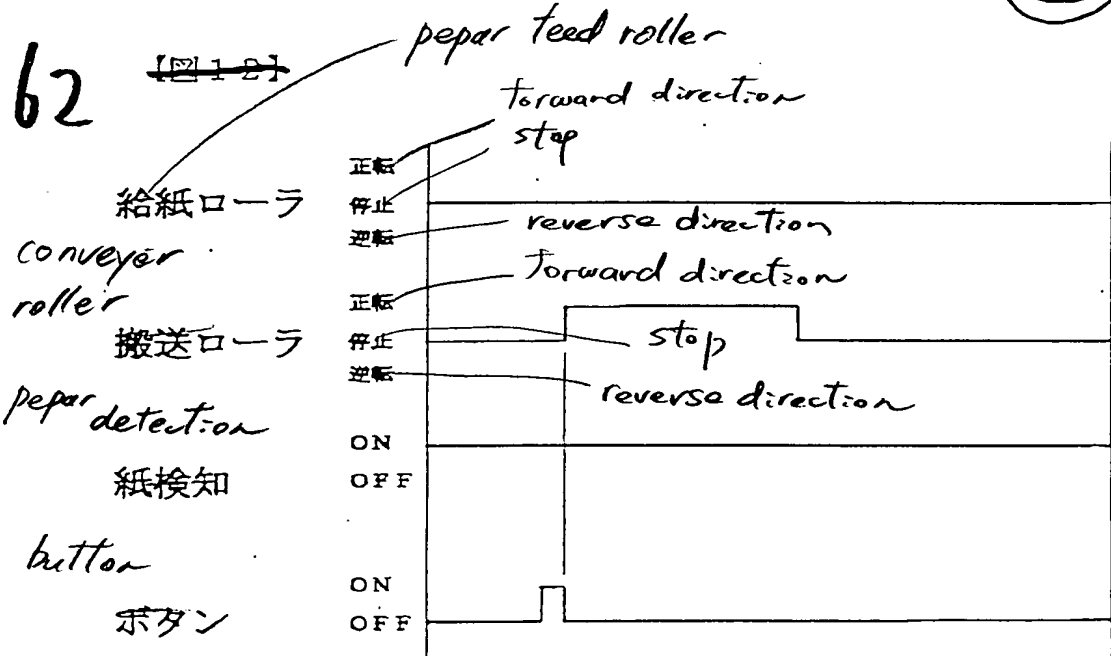 pepar feed roller
62 【図12】
forward direction
stop
正転
給紙ローラ 停止
逆転 reverse direction
conveyor
roller
正転 forward direction
搬送ローラ 停止 stop
逆転 reverse direction
pepar detection
ON
紙検知 OFF
button
ON
ボタン OFF